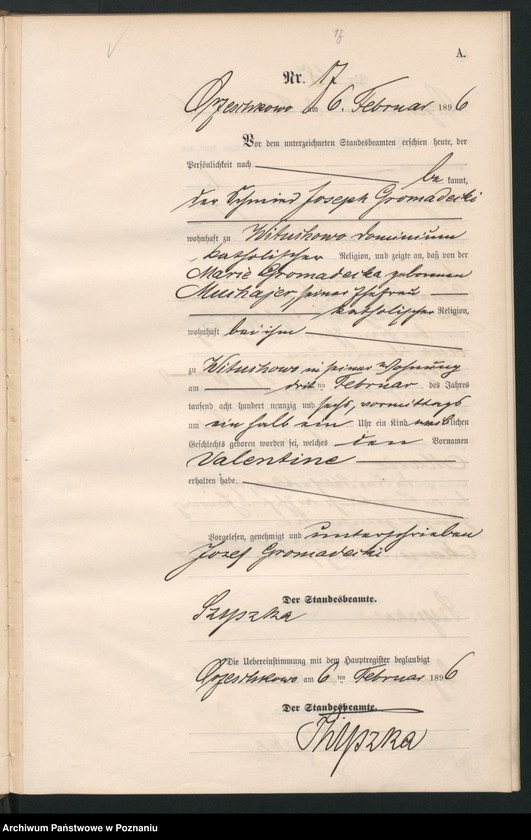 17
A.
Nr. 17
Orzeschkowo am 6. Februar 1896
Vor dem unterzeichneten Standesbeamten erschien heute, der
Persönlichkeit nach be kannt,
der Schmied Joseph Gromadecki
wohnhaft zu Wituchowo Dominium
katholischer Religion, und zeigte an, daß von der
Marie Gromadecka geborenen
seiner Ehefrau
katholischer Religion,
wohnhaft bei ihm
zu Wituchowo in seiner Wohnung
am dritten Februar des Jahres
tausend acht hundert neunzig und sechs, vormittags
um ein halb ein Uhr ein Kind weiblichen
Geschlechts geboren worden sei, welches den Vornamen
Valentine
erhalten habe
Vorgelesen, genehmigt und unterschrieben
Jozef Gromadecki
Der Standesbeamte.
Die Uebereinstimmung mit dem Hauptregister beglaubigt
Orzeschkowo am 6 ten Februar 1896
Der Standesbeamte.
Archiwum Państwowe w Poznaniu